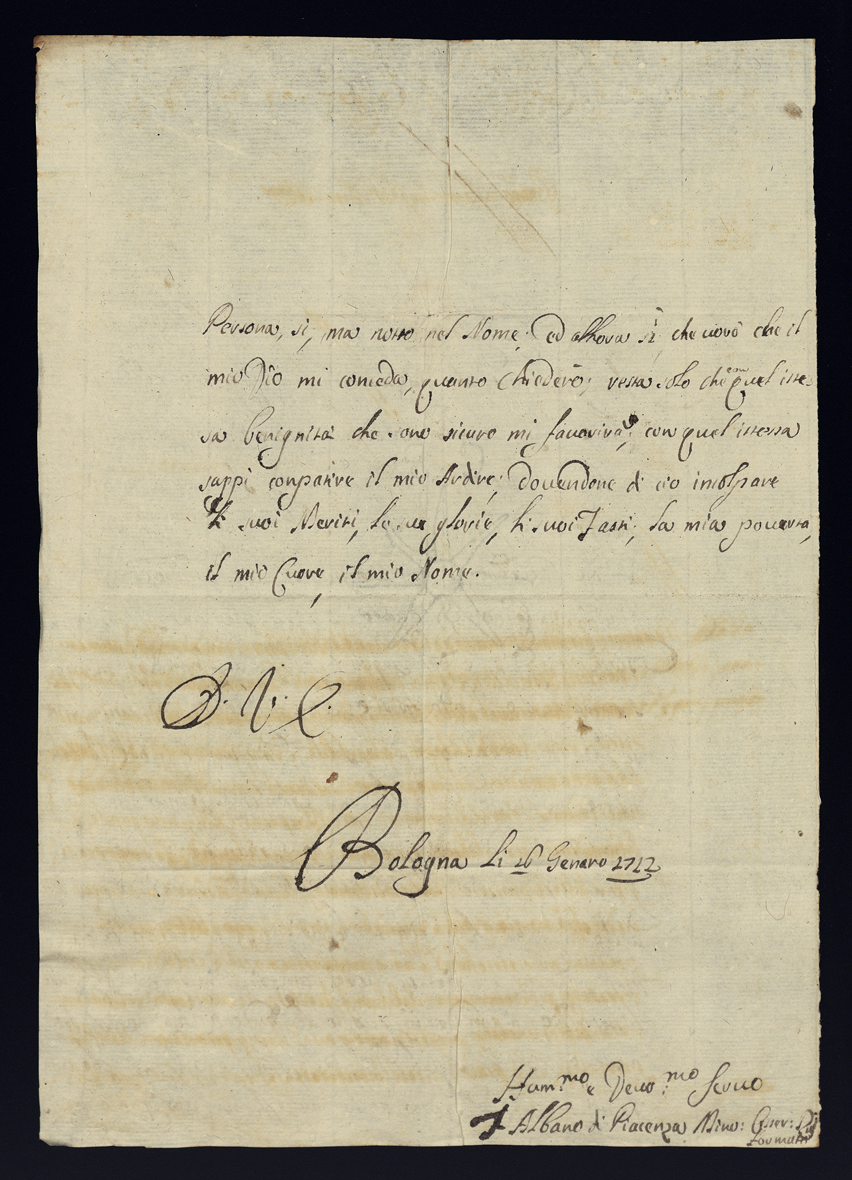 Persona, si, ma noto nel Nome; ed allhora sì, che vorò che il
mio Dio mi conceda, quanto chiederò; resta solo che con quel istes-
sa benignità che sono sicuro mi favorirà, con quel istessa
sappi conpatire il mio Ardire; dovendone di ciò incolpare
li suoi Meriti, le sue glorie, li suoi Fasti, la mia povertà,
il mio Cuore, il mio Nome.
D. V. E.
Bologna li 16 Genaro 1712
Hum.mo e Devo.mo Servo
F Albano di Piacenza Mino: Osser: